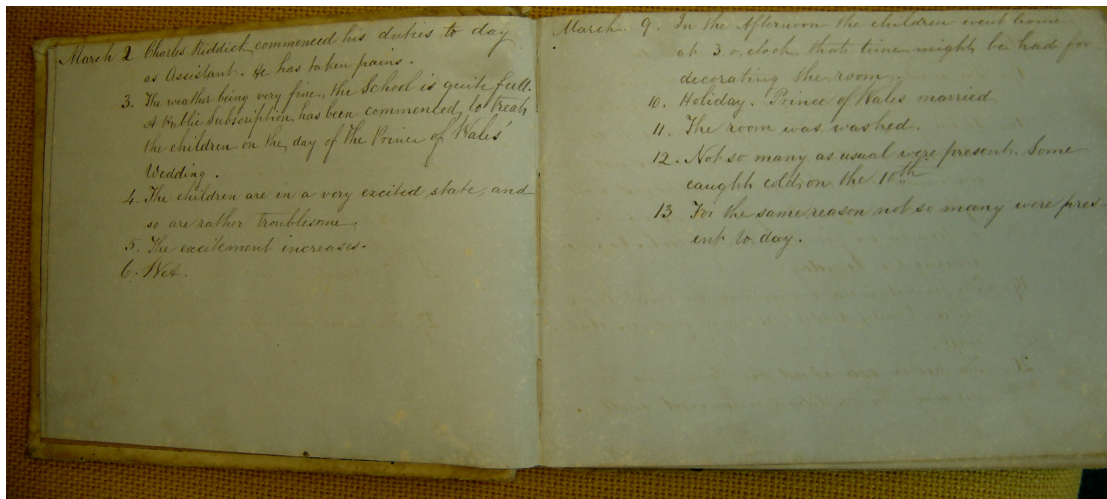 March 2 Charles Kiddich commenced his duties to day
as Assistant. He has taken pains.
3. The weather being very fine, the School is quite full.
A Public Subscription has been commenced, to treat
the children on the day of The Prince of Wales'
Wedding.
4. The children are in a very excited state, and
so are rather troublesome.
5. The excitement increases.
6. Wet.
March. 9. In the Afternoon the children went home
at 3 o,clock that time might be had for
decorating the room.
10. Holiday. Prince of Wales married
11. The room was washed.
12. Not so many as usual were present. Some
caught cold on the 10th
13 For the same reason not so many were pres-
ent to day.